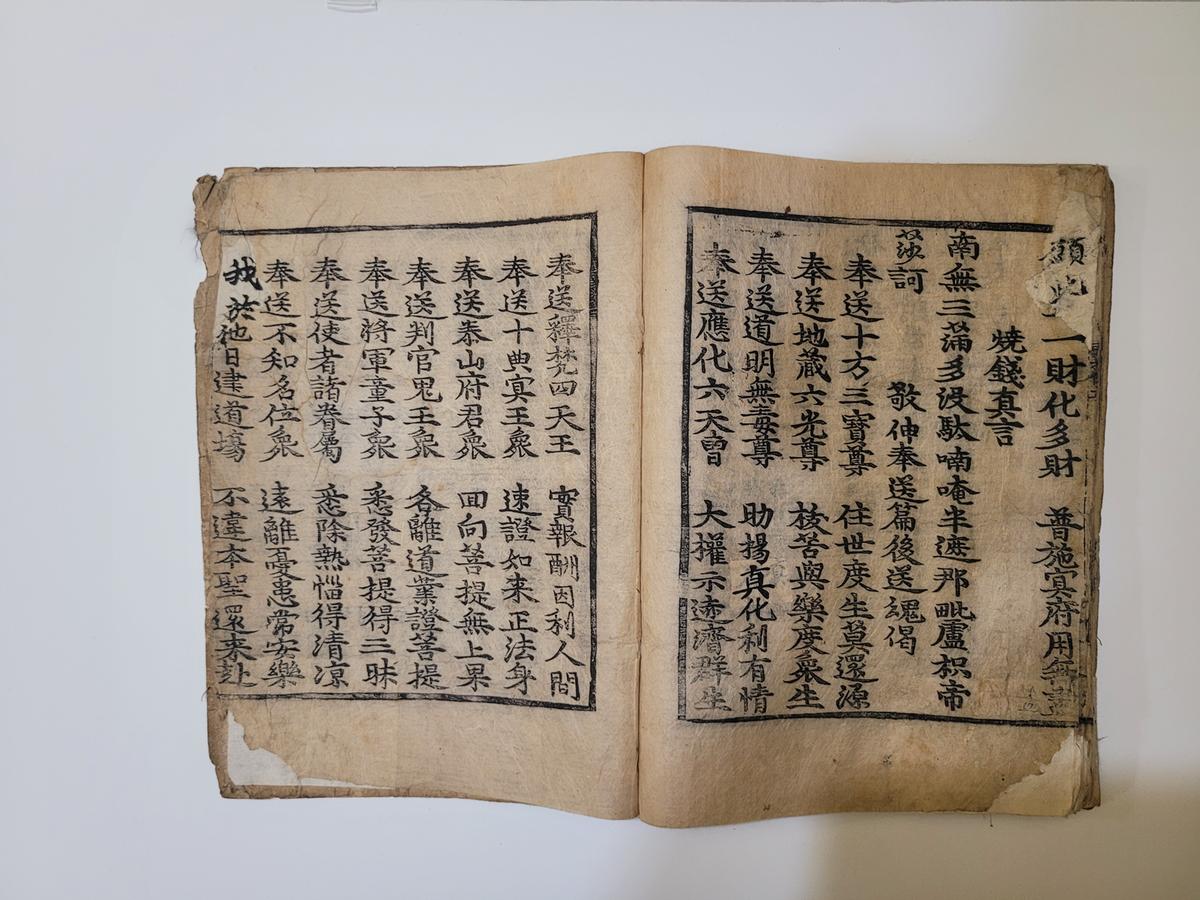 願此一財化多財 普施冥府用無盡
燒錢真言
南無三蒲多没駄喃唵半遮那毗盧枳帝
莎訶 敬伸奉送篇後送魂偈
奉送十方三寶尊 住世度生莫還源
奉送地藏六光尊 桉苦與樂度衆生
奉送道明無毒尊 助揚真化利有情
奉送應化六天曺 大權示迹濟群生
奉送釋梵四天王 實報酬因利人間
奉送十典㝠王衆 速證如来正法身
奉送泰山府君衆 囬向菩提無上果
奉送判官鬼王衆 各離道業證菩提
奉送將軍童子衆 悉發菩提得三昧
奉送使者諸眷屬 悉除熱惱得清凉
奉送不知名位衆 遠離憂患常安樂
我於他日建道場 不違本聖還来赴